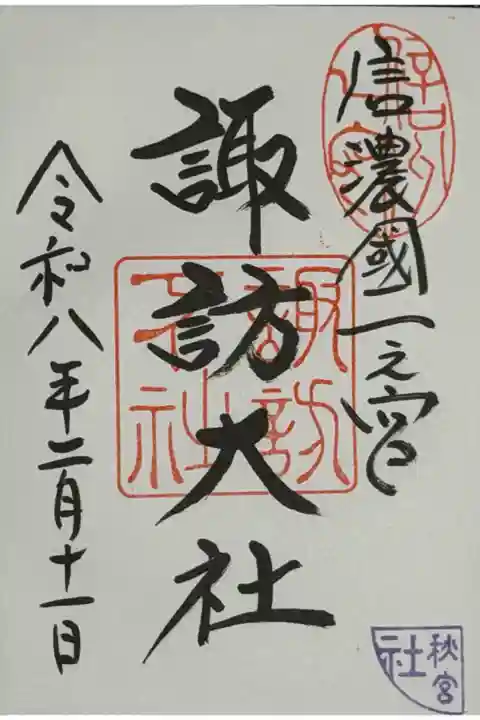 信濃國一之宮
諏訪大社
諏訪
大社
令和八年二月十一日
秋宮
社